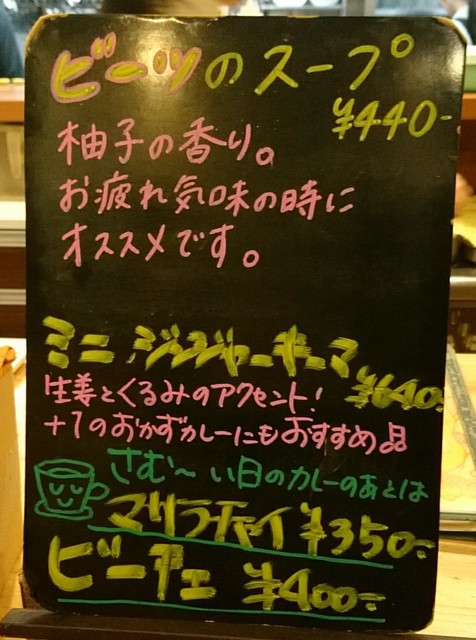 ビーツのスープ
¥440-
柚子の香り。
お疲れ気味の時に
オススメです。
ミニ ジンジャーキーマ
¥640-
生姜とくるみのアクセント!
+1のおかずカレーにもおすすめ品
さむ〜い日のカレーのあとは
マサラチャイ ¥350-
ビーチェ ¥400-